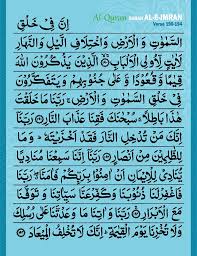 Al-Quran SURAH AL-E-IMRAN
Verse 190-194
اِنَّ فِیْ خَلْقِ
السَّمٰوٰتِ وَ الْاَرْضِ وَاخْتِلَافِ الَّیْلِ وَ النَّهَارِ
لَاٰیٰتٍ لِّاُولِی الْاَلْبَابِ ۙ الَّذِیْنَ یَذْكُرُوْنَ اللّٰهَ
قِیٰمًا وَّ قُعُوْدًا وَّ عَلٰی جُنُوْبِهِمْ وَ یَتَفَكَّرُوْنَ
فِیْ خَلْقِ السَّمٰوٰتِ وَ الْاَرْضِ ۚ رَبَّنَا مَا خَلَقْتَ
هٰذَا بَاطِلًا ۚ سُبْحٰنَكَ فَقِنَا عَذَابَ النَّارِ رَبَّنَاۤ
اِنَّكَ مَنْ تُدْخِلِ النَّارَ فَقَدْ اَخْزَیْتَهٗ ؕ وَ مَا
لِلظّٰلِمِیْنَ مِنْ اَنْصَارٍ رَبَّنَاۤ اِنَّنَا سَمِعْنَا مُنَادِیًا
یُّنَادِیْ لِلْاِیْمَانِ اَنْ اٰمِنُوْا بِرَبِّكُمْ فَاٰمَنَّا ۖ رَبَّنَا
فَاغْفِرْلَنَا ذُنُوْبَنَا وَكَفِّرْعَنَّا سَیِّاٰتِنَا وَ تَوَفَّنَا
مَعَ الْاَبْرَارِ ۚ رَبَّنَا وَ اٰتِنَا مَا وَعَدْتَّنَا عَلٰی رُسُلِكَ
وَلَا تُخْزِنَا یَوْمَ الْقِیٰمَةِ ؕ اِنَّكَ لَا تُخْلِفُ الْمِیْعَادَ